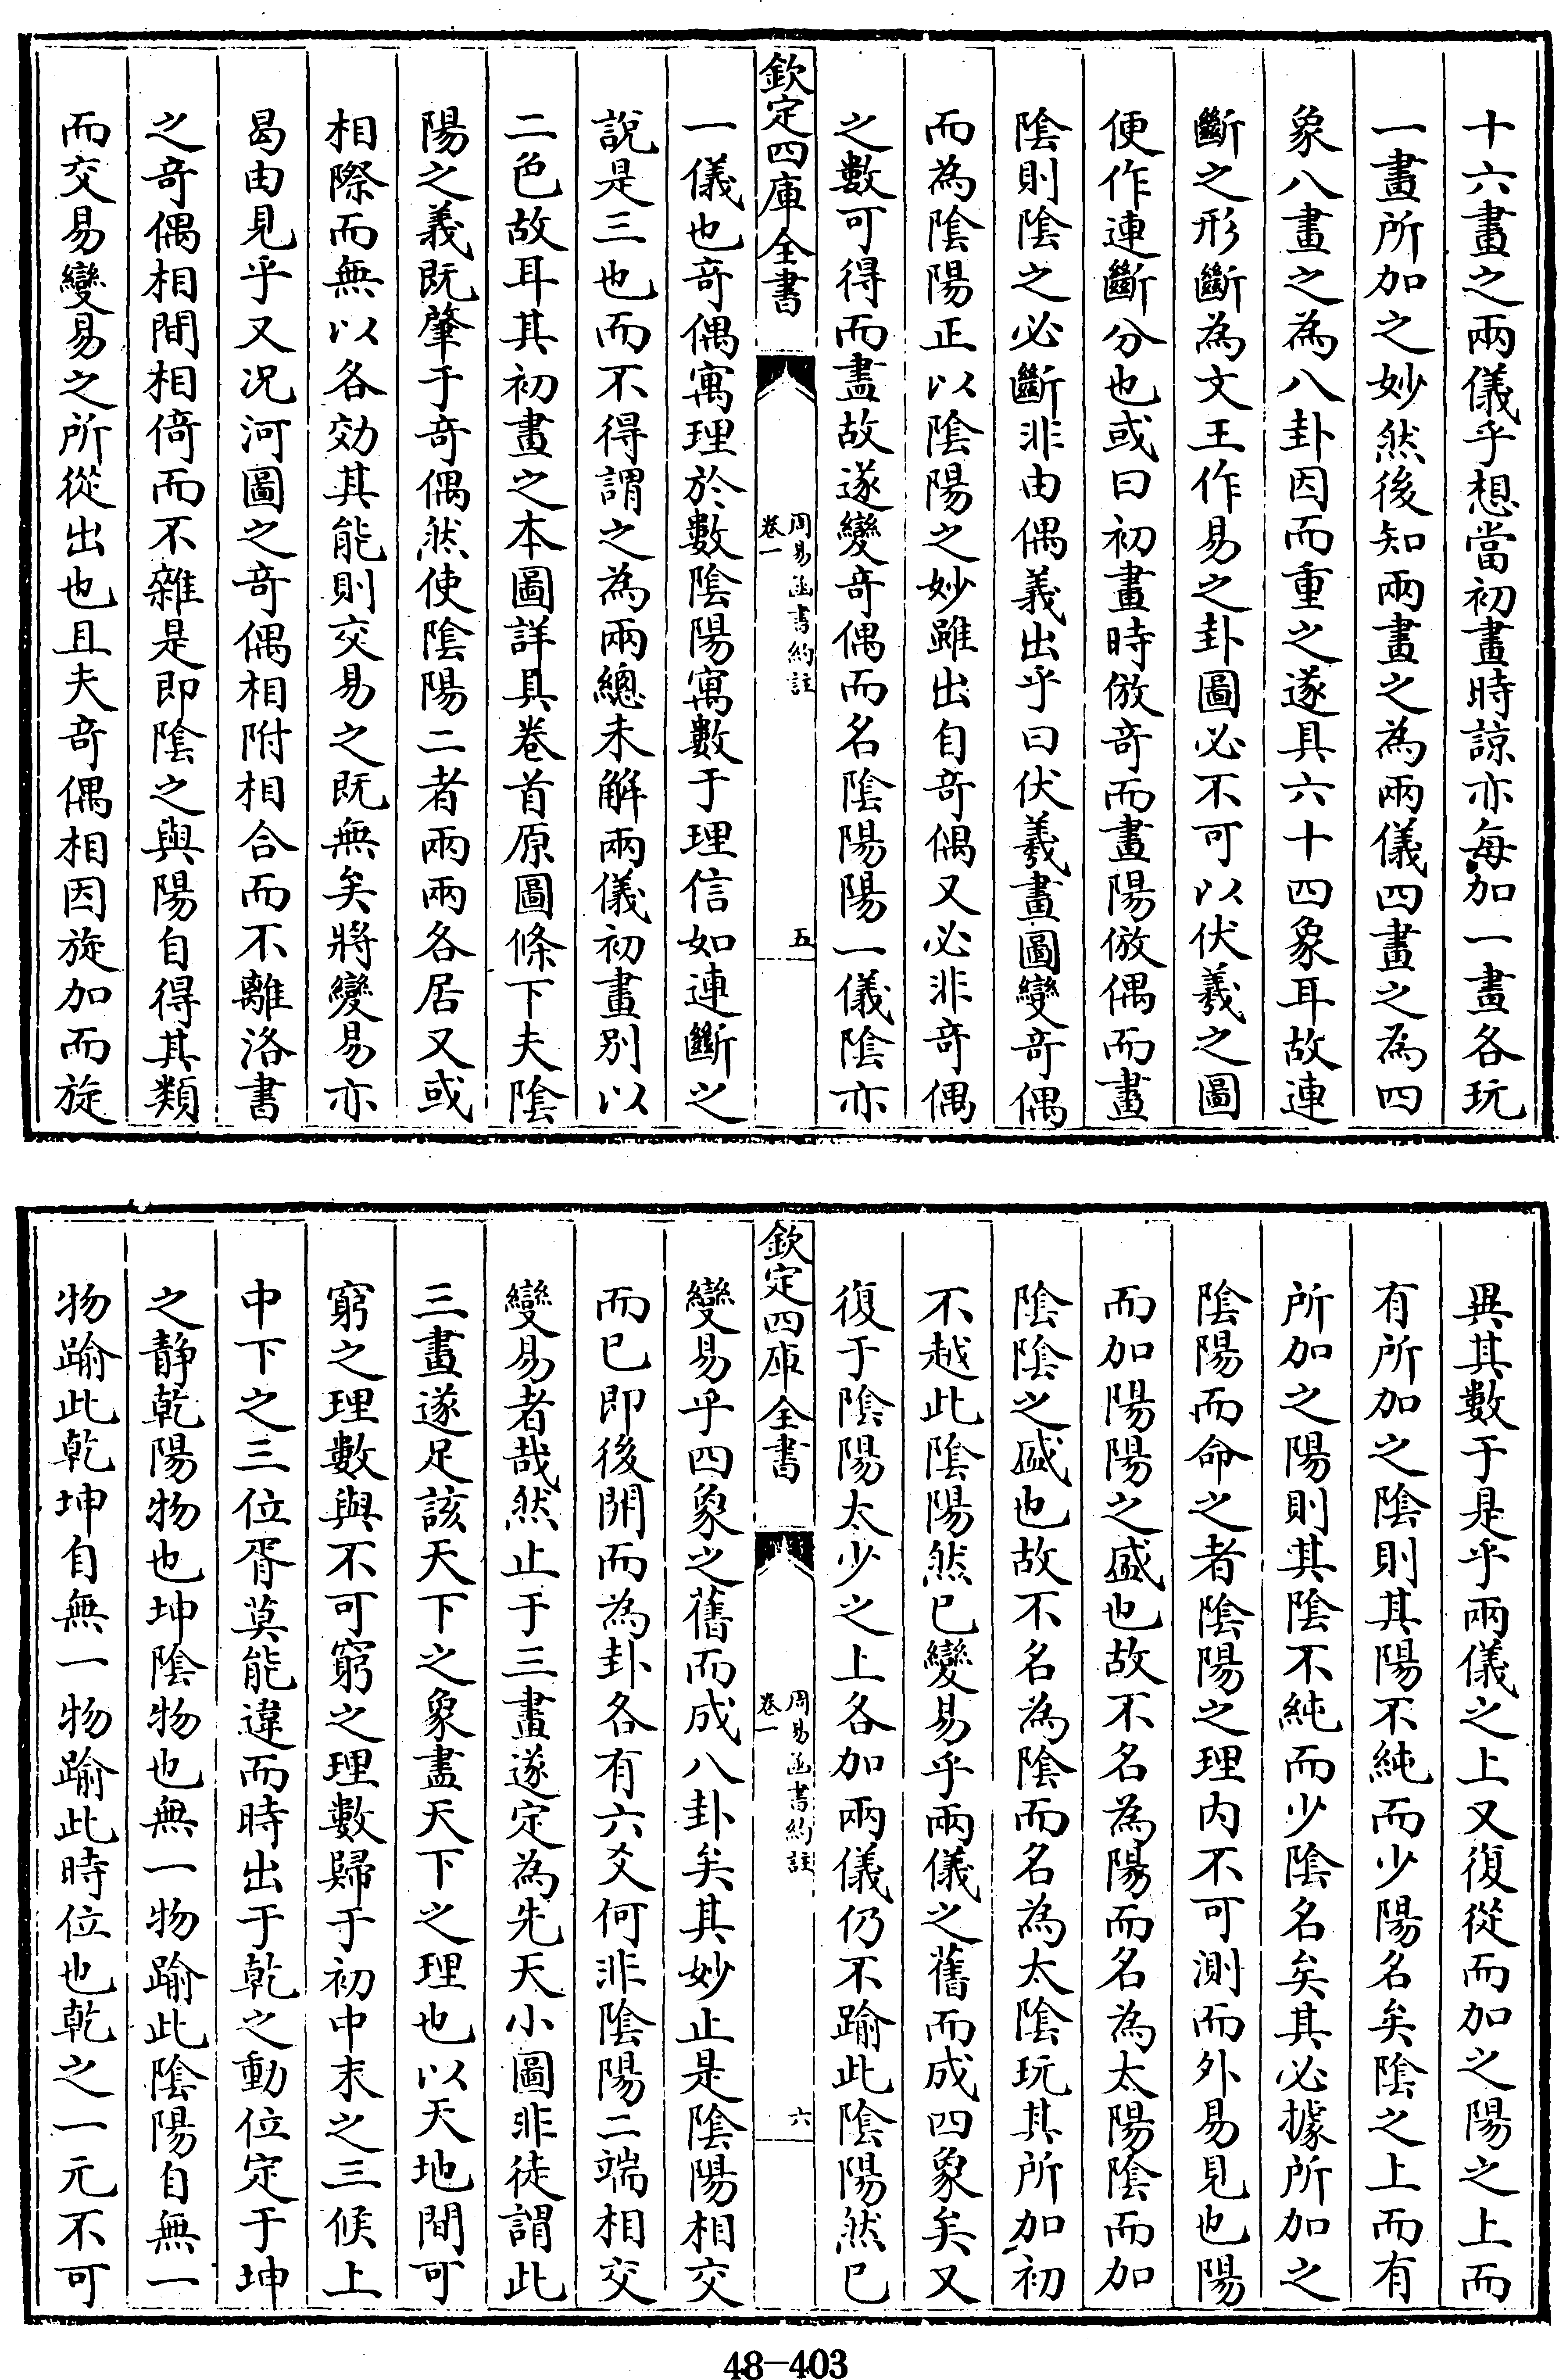 十六畫之兩儀乎想當初畫時諒亦每加一畫各玩
一畫所加之妙然後知兩畫之為兩儀四畫之為四
象八畫之為八卦因而重之遂具六十四象耳故連
斷之形斷為文王作易之卦圖必不可以伏羲之圖
便作連斷分也或曰初畫時倣奇而畫陽倣偶而畫
陰則陰之必斷非由偶義出乎曰伏羲畫圖變奇偶
而為陰陽正以陰陽之妙雖出自奇偶又必非奇偶
之數可得而盡故遂變奇偶而名陰陽陽一儀陰亦
欽定四庫全書
周易函書約註
卷一
五
一儀也奇偶寓理於數陰陽寓數于理信如連斷之
說是三也而不得謂之為兩總未解兩儀初畫別以
二色故耳其初畫之本圖詳具卷首原圖條下夫陰
陽之義既肇于奇偶然使陰陽二者兩兩各居又或
相際而無以各効其能則交易之既無矣將變易亦
曷由見乎又况河圖之奇偶相附相合而不離洛書
之奇偶相間相倚而不雜是即陰之與陽自得其類
而交易變易之所從出也且夫奇偶相因旋加而旋
異其數于是乎兩儀之上又復從而加之陽之上而
有所加之陰則其陽不純而少陽名矣陰之上而有
所加之陽則其陰不純而少陰名矣其必據所加之
陰陽而命之者陰陽之理内不可測而外易見也陽
而加陽陽之盛也故不名為陽而名為太陽陰而加
陰陰之盛也故不名為陰而名為太陰玩其所加初
不越此陰陽然已變易乎兩儀之舊而成四象矣又
復于陰陽太少之上各加兩儀仍不踰此陰陽然已
欽定四庫全書
周易函書約註
卷一
六
變易乎四象之舊而成八卦矣其妙止是陰陽相交
而已即後開而為卦各有六爻何非陰陽二端相交
變易者哉然止于三畫遂定為先天小圖非徒謂此
三畫遂足該天下之象盡天下之理也以天地間可
窮之理數與不可窮之理數歸于初中末之三候上
中下之三位胥莫能違而時出于乾之動位定于坤
之静乾陽物也坤陰物也無一物踰此陰陽自無一
物踰此乾坤自無一物踰此時位也乾之一元不可
48-403